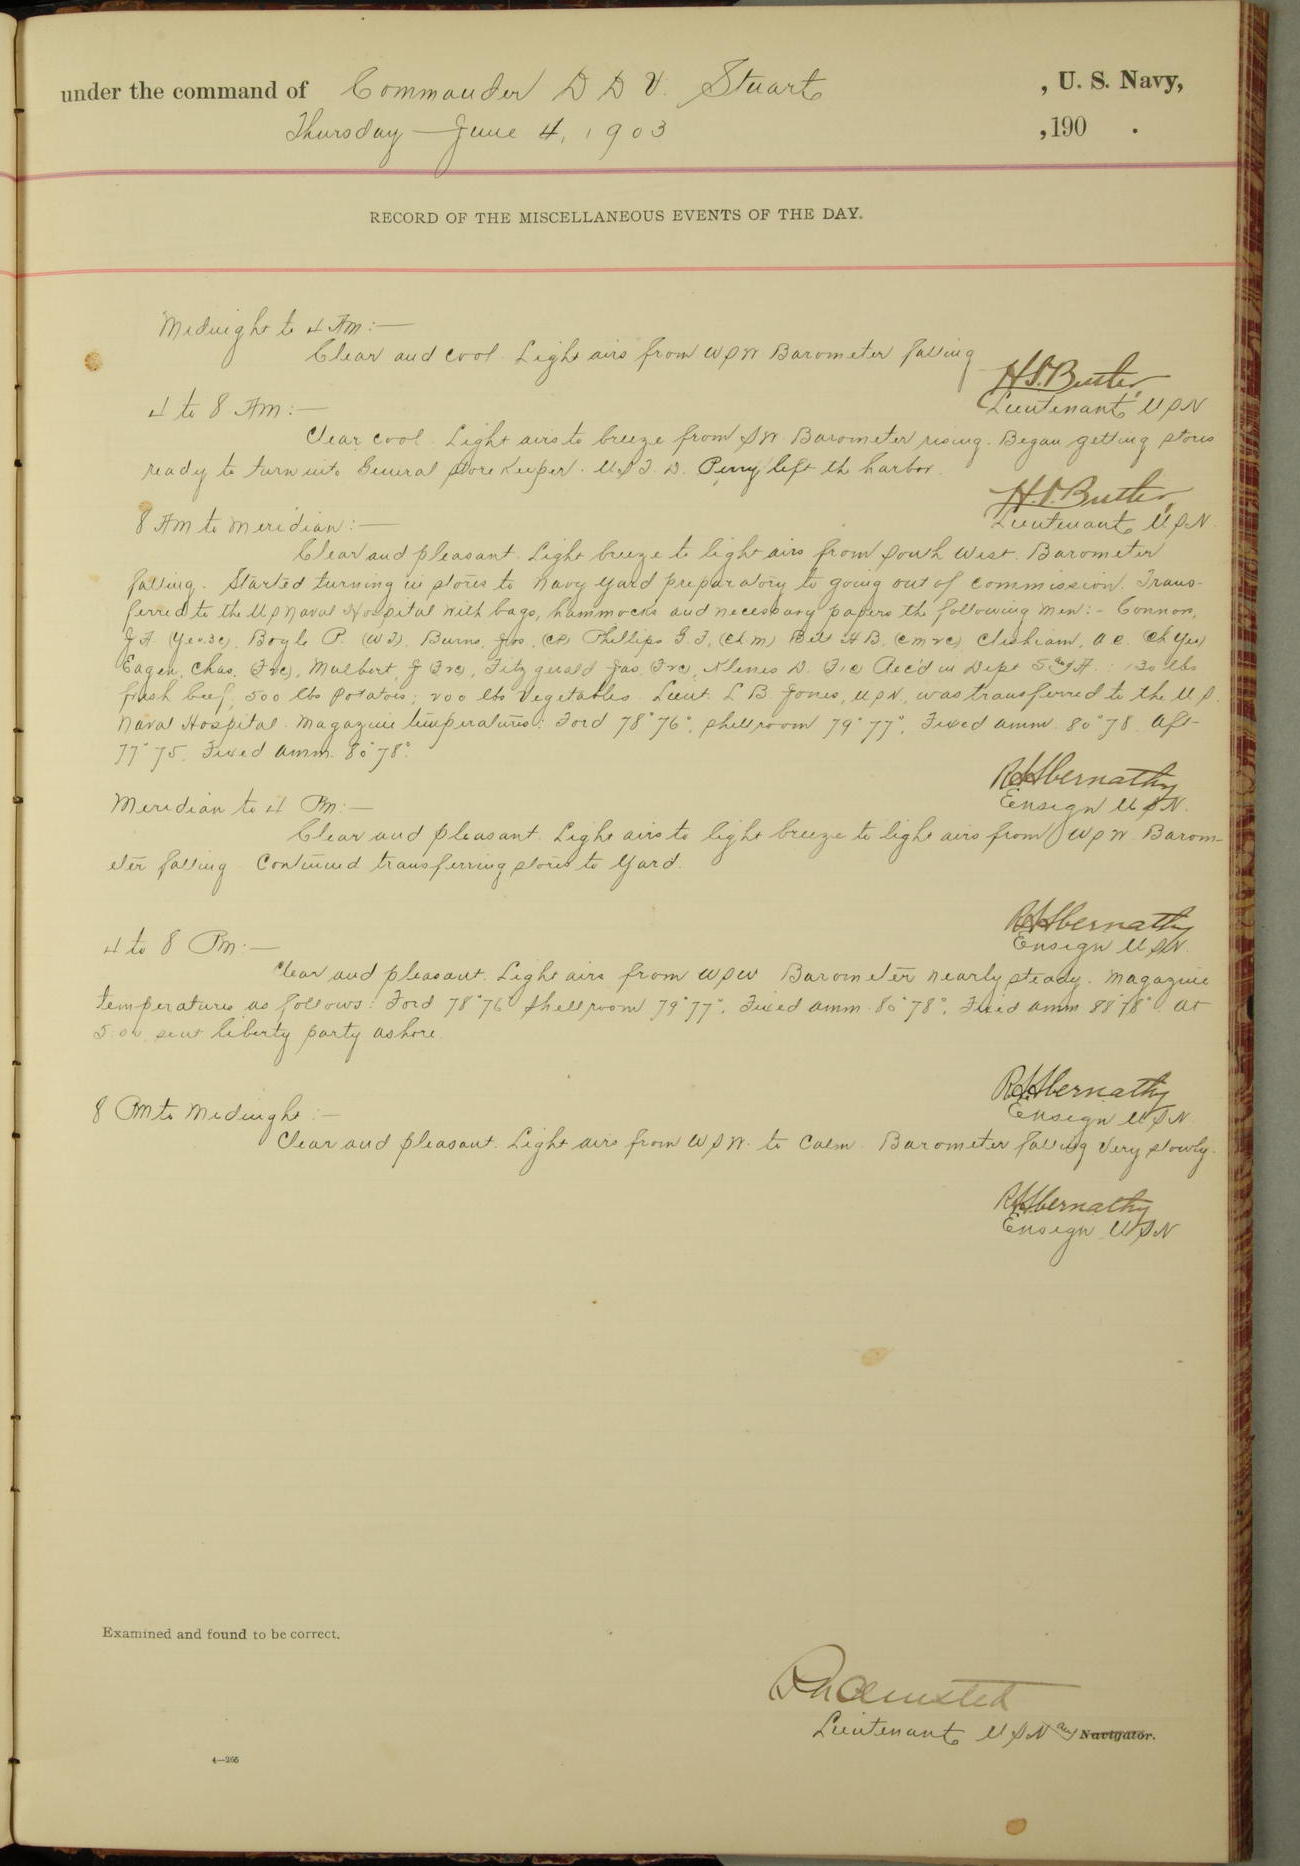 under the command of Commander D D V. Stuart, U. S. Navy,
Thursday — June 4, 1903 , 190 .
RECORD OF THE MISCELLANEOUS EVENTS OF THE DAY.
Midnight to 4 Am:—
Clear and cool. Light airs from WSW Barometer falling
Lieutenant USN
4 to 8 Am:—
Clear cool. Light airs to breeze from SW. Barometer rising. Began getting stores
ready to turn into General Store Keeper. U.S.T.D. Perry left the harbor.
Lieutenant USN.
8 Am to Meridian:—
Clear and pleasant. Light breeze to light airs from South West. Barometer
falling. Started turning in stores to Navy Yard preparatory to going out of commission. Trans-
ferred to the US Naval Hospital with bags, hammocks and necessary papers the following men:- Connor,
J.A. (Yeo3c), Boyle P. (WT), Burns, Jas, (CP) Phillips G.T, (Ch.m) Bell H B, (cm2c), Clisham, A C. (Ch Yeo)
Eagen, Chas. F2c), Mulbert, J F2c), Fitzgerald Jas F2c), D. F1c Rec'd in Dept : 130 lbs
fresh beef, 500 lbs Potatoes; 200 lbs Vegetables. Lieut. L B. Jones, USN, was transferred to the U.S.
Naval Hospital. Magazine temperatures: Ford 78° 76°, Shellroom 79° 77°, Fixed amm. 80° 78. Aft-
77° 75, Fixed amm. 80° 78°.
R Abernathy
Ensign USN.
Meridian to 4 Pm:—
Clear and pleasant. Light airs to light breeze to light airs from WSW. Barom-
eter falling. Continued transferring stores to Yard.
R Abernathy
Ensign USN.
4 to 8 Pm:—
Clear and pleasant. Light airs from WSW Barometer nearly steady. Magazine
temperatures as follows: Ford 78° 76° Shellroom 79° 77°, Fixed amm. 80° 78°, Fixed amm 88° 78° At
5:00 sent liberty party ashore.
R Abernathy
Ensign USN.
8 Pm to Midnight:—
Clear and pleasant. Light airs from WSW. to Calm. Barometer falling very slowly.
R Abernathy
Ensign USN
Examined and found to be correct.
Lieutenant USN and Navigator.
4—265